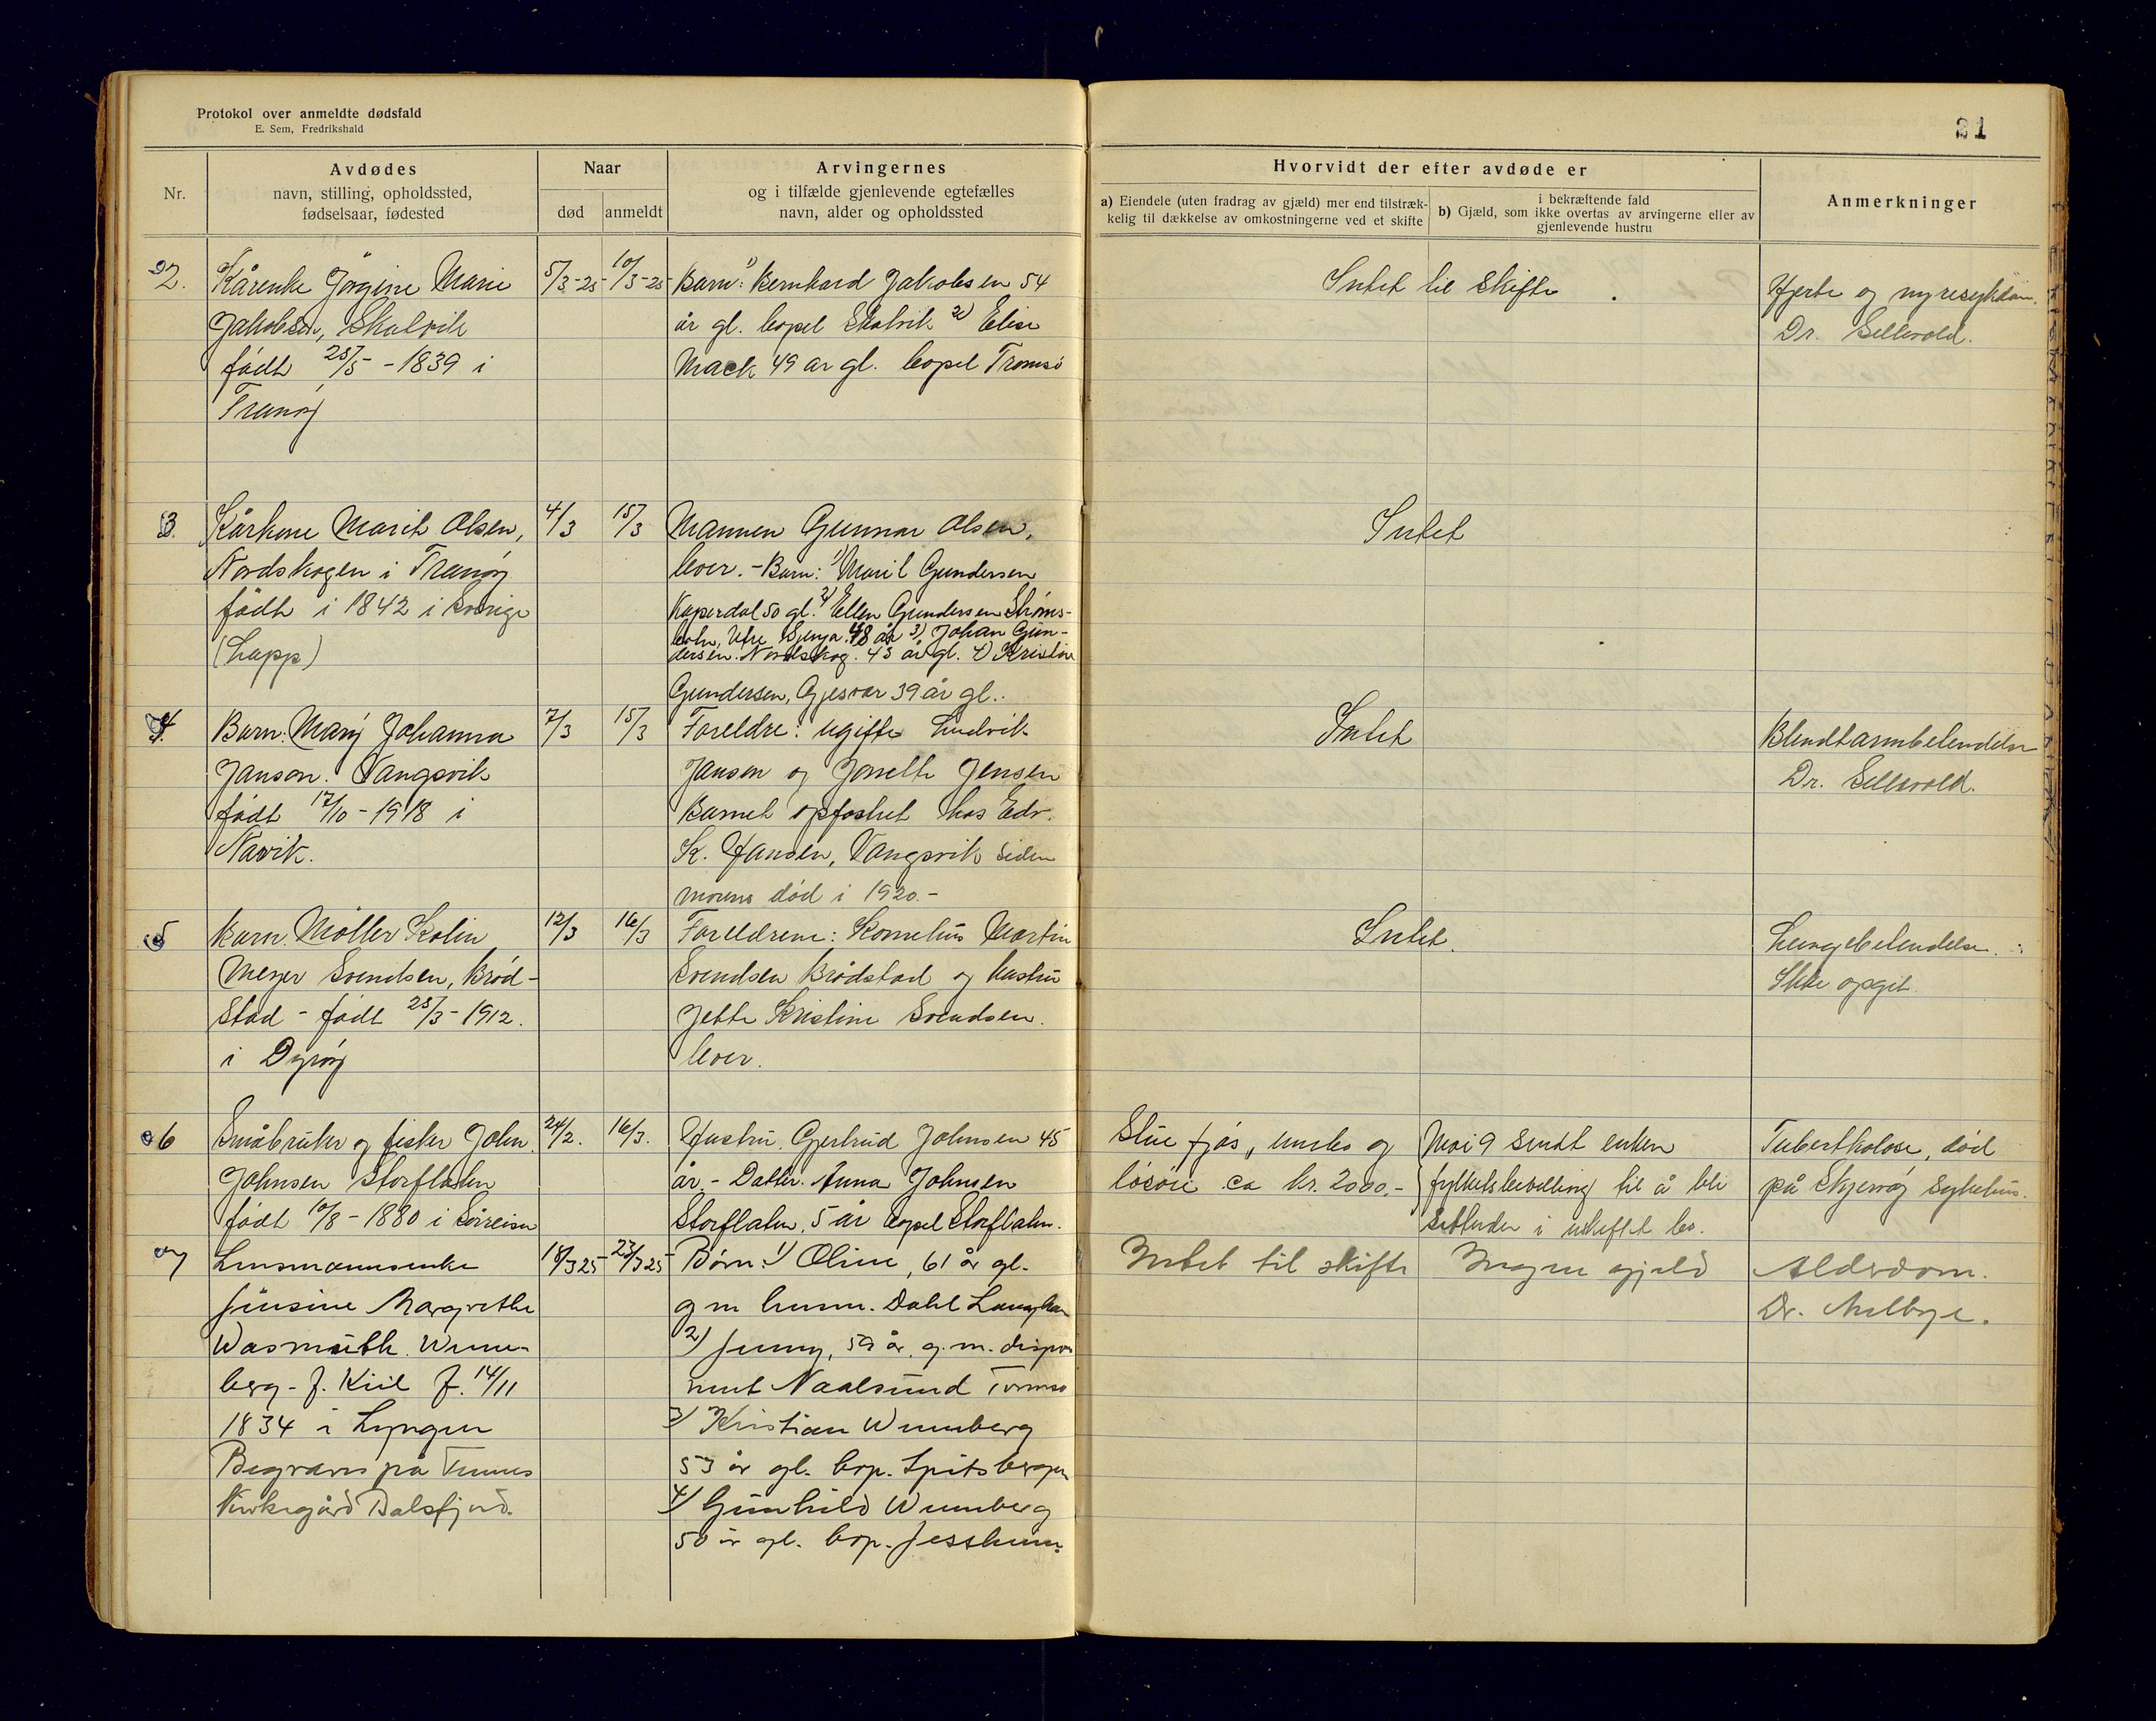 Protokol over anmeldte dødsfald
E. Sem, Fredrikshald
21
Nr.
Avdødes
navn, stilling, opholdssted,
fødselsaar, fødested
Naar
død
anmeldt
Arvingernes
og i tilfælde gjenlevende egtefælles
navn, alder og opholdssted
Hvorvidt der efter avdøde er
a) Eiendele (uten fradrag av gjæld) mer end tilstræk-
kelig til dækkelse av omkostningerne ved et skifte
i bekræftende fald
b) Gjæld, som ikke overtas av arvingerne eller av
gjenlevende hustru
Anmerkninger
2.
Kårenke Jørgine Marie
Jakobsen, Skalvik
født 25/5 - 1839 i
Tranøy
5/3-25
10/3-25
Barn: 1) Bernhard Jakobsen 54
år gl. bopel Skalvik 2) Elise
Mack 49 år gl. bopel Tromsø
Intet til skifte.
Hjerte og nyresykdom.
Dr. Sellevold.
3.
Kårkone Marit Olsen,
Nordskogen i Tranøy
født i 1842 i Sverige
(Lapp)
4/3
15/3
Mannen Gunnar Olsen,
lever. - Barn: 1) Marit Gundersen
Kaperdal 50 gl. 2) Ellen Gundersen Strøms-
botn, Ytre Senja. 48 år 3) Johan Gun-
dersen. Nordskog. 43 år gl. 4) Kristine
Gundersen, Gjesvær 39 år gl..
Intet
4.
Barn: Mary Johanna
Janson. Vangsvik
født 17/10 - 1918 i
Narvik.
7/3
15/3
Foreldre: ugifte Ludvik
Jansen og Jonette Jensen
Barnet opfostret hos Edv.
K. Hansen, Vangsvik siden
morens død i 1920.-
Intet
Blindtarmbetendelse
Dr. Sellevold.
5
Barn. Møller Kolin
Meyer Svendsen, Brød-
stad - født 25/3 - 1912.
i Dyrøy
12/3
16/3
Foreldrene: Kornelius Martin
Svendsen Brødstad og hustru
Jette Kristine Svendsen.
lever.
Intet.
Lungebetendelse.
Ikke opgit.
6
Småbruker og fisker John
Johnsen Storflaten
født 10/8 - 1880 i Sørreisa
24/2.
16/3.
Hustru. Gjertrud Johnsen 45
år. - Datter. Anna Johnsen
Storflaten, 5 år bopel Storflaten.
Stue fjøs, innbo og
løsøre ca kr. 2000.-
Mai 9 sendt enken
fylkesbevilling til å bli
sittende i uskiftet bo.
Tuberkulose, død
på Skjervøy sykehus.
7
Lensmannsenke
Jensine Margrethe
Wasmuth Wenn-
berg - f. Kiil f. 14/11
1834 i Lyngen
Begraves på Tennes
Kirkegård Balsfjord.
18/3 25
23/3 25
Børn: 1) Oline, 61 år gl.
g m Dahl
2) Jenny, 59 år, g. m. dispo
nent Naalsund Tromsø
3) Kristian Wennberg
53 år gl. bop. Spitsbergen
4) Gunhild Wennberg
50 år gl. bop.
Intet til skifte
Ingen gjeld
Alderdom.
Dr.